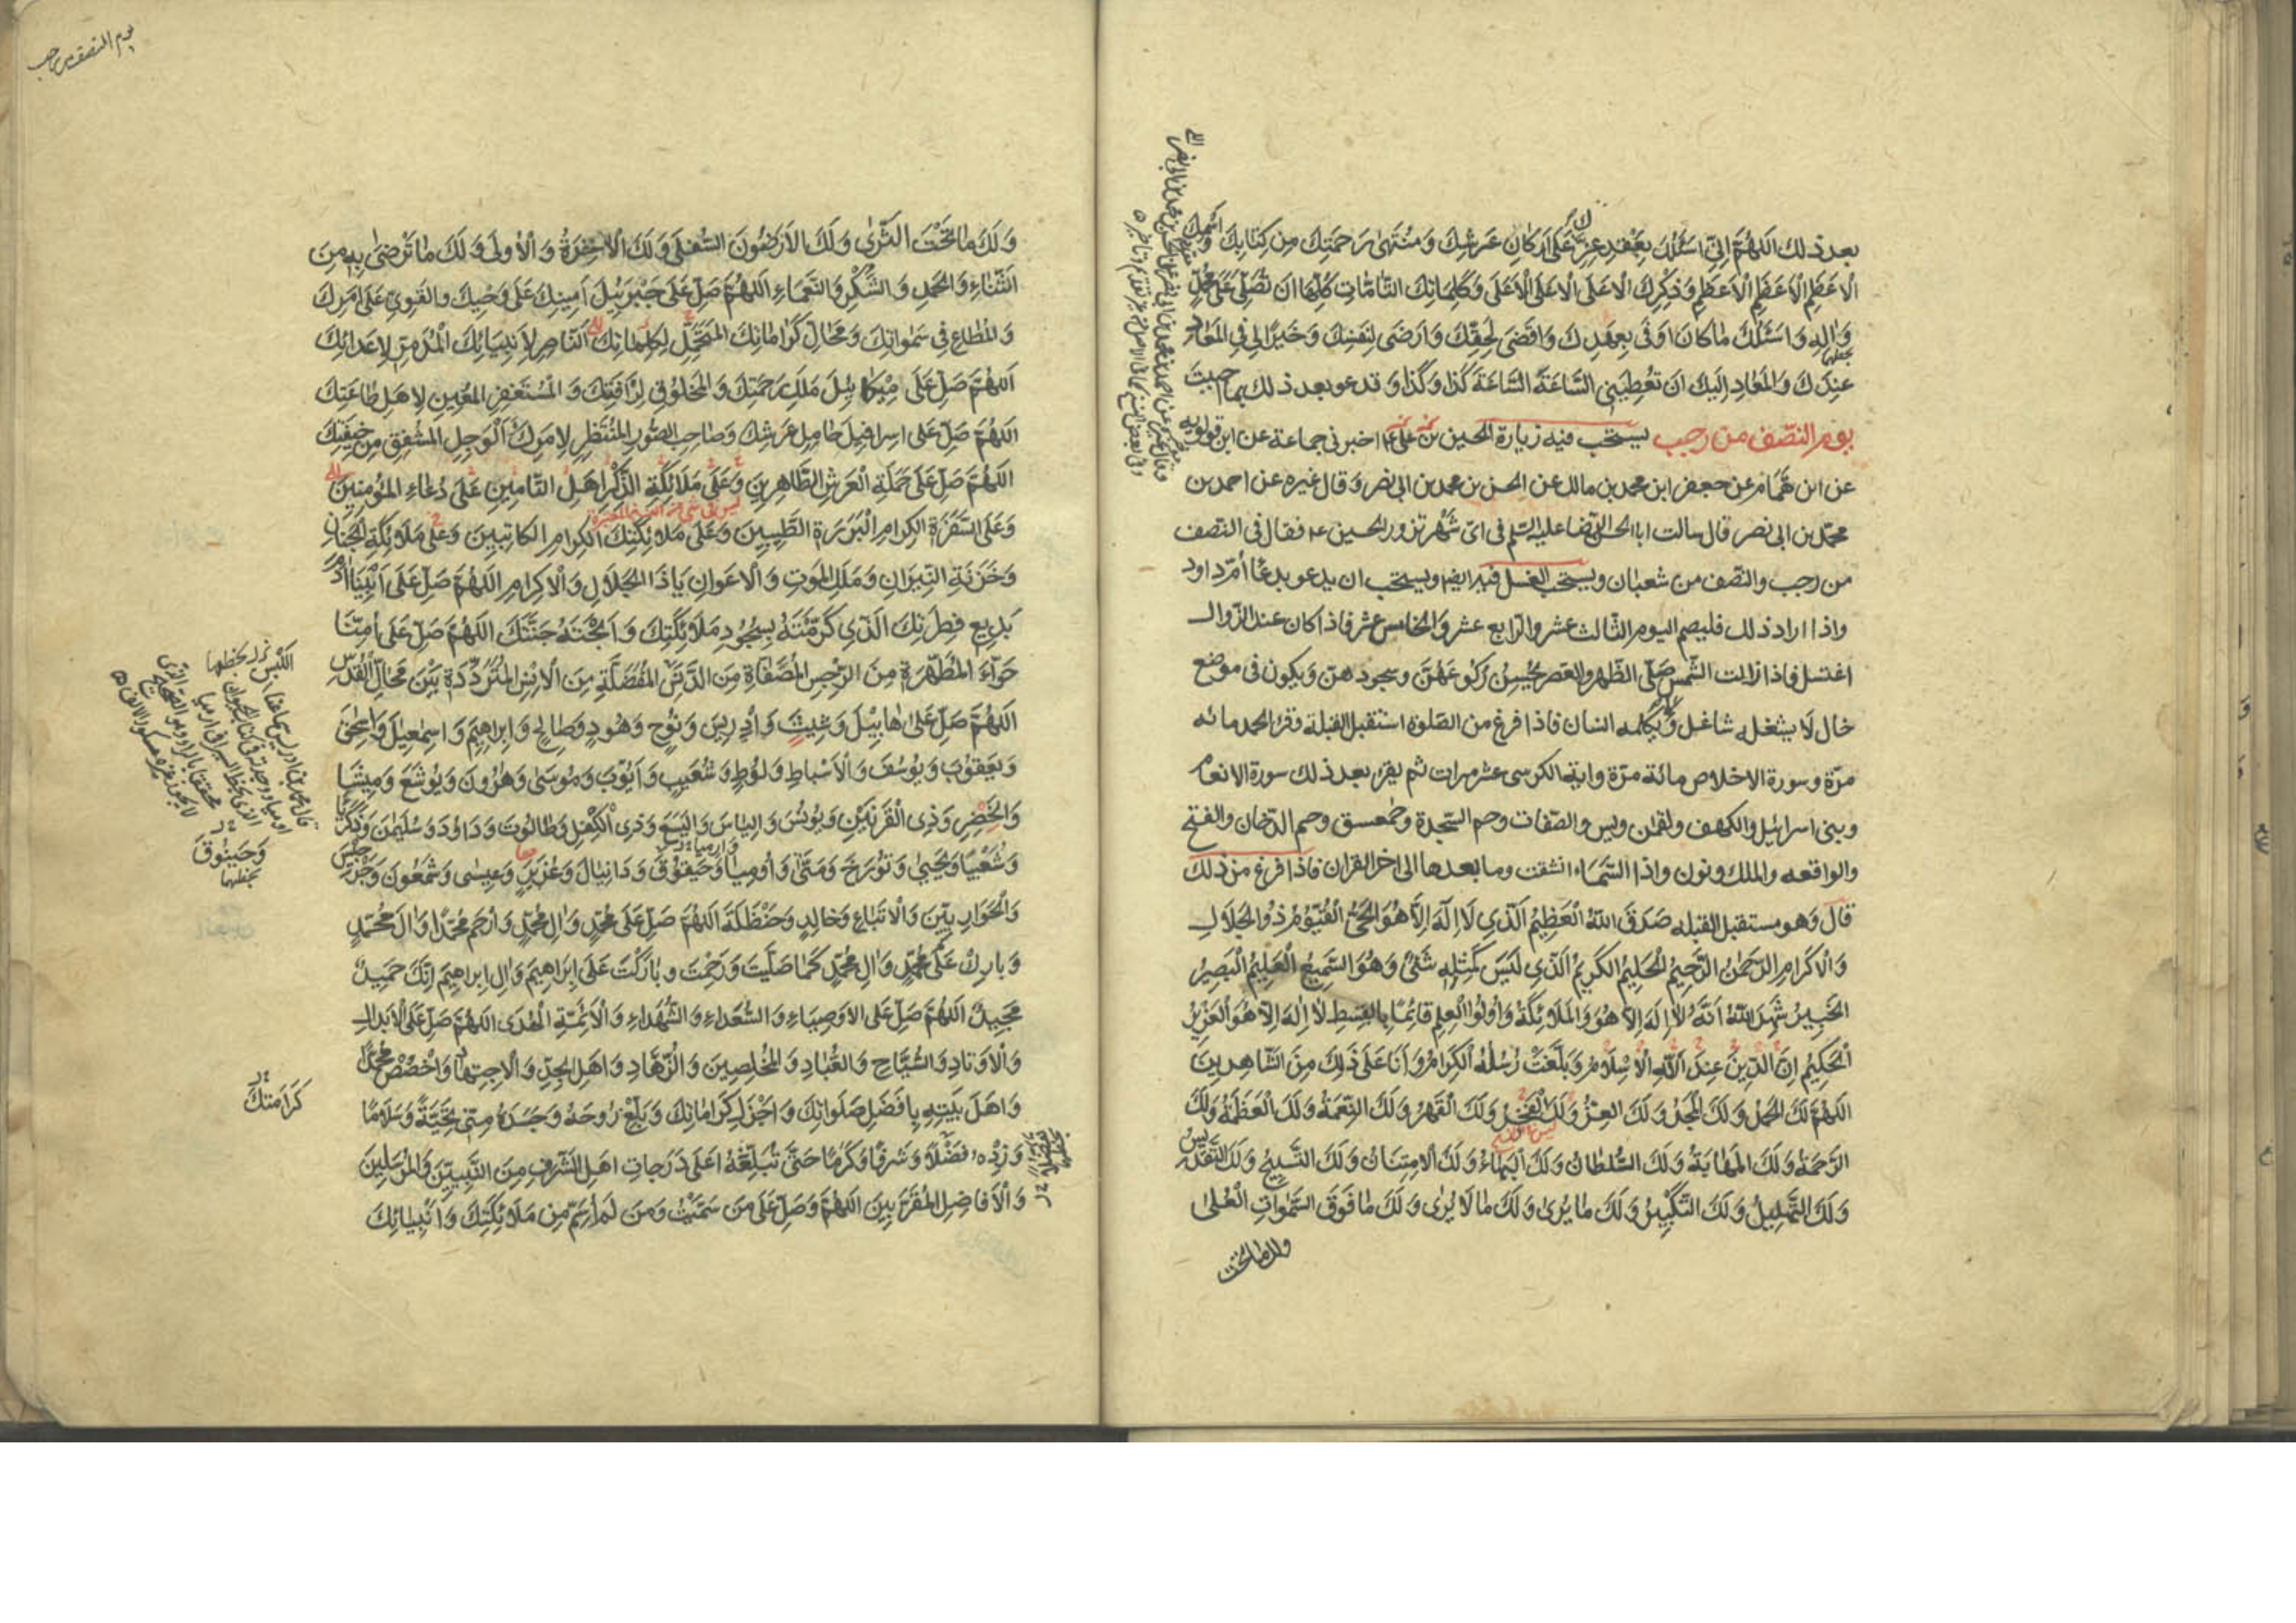 بعد ذلك اللهم انى اسئلك بعقد عز على اركان عرشك ومنتهى رحمتك من كتابك واسمك
الاعظم الاعظم الاعظم وذكرك الاعلى الاعلى الاعلى وكلماتك التامات كلها ان تصلى على محمد
واله واسئلك ما كان اوفى بعهدك واقضى لحقك وارضى لنفسك وخيرا لى فى المعاد
عندك والمعاد اليك ان تعطينى الساعة الساعة كذا وكذا وتدعو بعد ذلك بما احببت
يوم النصف من رجب يستحب فيه زيارة الحسين بن على ع اخبرنى جماعة عن ابن قولويه
عن ابن همام عن جعفر ابن محمد بن مالك عن الحسن بن محمد بن ابى نصر وقال غيره عن احمد بن
محمد بن ابى نصر قال سالت ابا الحسن الرضا عليه السلم فى اى شهر تزور الحسين ع فقال فى النصف
من رجب والنصف من شعبان ويستحب الغسل فيه ايضا ويستحب ان يدعو بدعا ام داود
واذا اراد ذلك فليصم اليوم الثالث عشر والرابع عشر والخامس عشر فاذا كان عند الزوال
اغتسل فاذا زالت الشمس صلى الظهر والعصر يحسن ركوعهن وسجودهن ويكون فى موضع
خال لا يشغله شاغل ولا يكلمه انسان فاذا فرغ من الصلوة استقبل القبلة وقرء الحمد مائه
مرة وسورة الاخلاص مائة مرة واية الكرسى عشر مرات ثم يقرء بعد ذلك سورة الانعام
وبنى اسرائيل والكهف ولقمن ويس والصفات وحم السجدة وحمعسق وحم الدخان والفتح
والواقعه والملك ونون واذا السماء انشقت وما بعدها الى اخر القران فاذا فرغ من ذلك
قال وهو مستقبل القبله صدق الله العظيم الذى لا اله الا هو الحى القيوم ذو الجلال
والاكرام الرحمن الرحيم الحليم الكريم الذى ليس كمثله شئ وهو السميع العليم البصير
الخبير شهد الله انه لا اله الا هو والملائكة واولوا العلم قائما بالقسط لا اله الا هو العزيز
الحكيم ان الدين عند الله الاسلام وبلغت رسله الكرام وانا على ذلك من الشاهدين
اللهم لك الحمد ولك المجد ولك العز ولك الفخر ولك القهر ولك النعمة ولك العظمة ولك
الرحمة ولك المهابة ولك السلطان ولك البهاء ولك الامتنان ولك التسبيح ولك التقديس
ولك التهليل ولك التكبير ولك ما يرى ولك ما لا يرى ولك ما فوق السموات العلى
ولك ما تحت
يوم النصف من رجب
ولك ما تحت الثرى ولك الارضون السفلى ولك الاخرة والاولى ولك ما ترضى به من
الثناء والحمد والشكر والنعماء اللهم صل على جبرئيل امينك على وحيك والقوى على امرك
والمطاع فى سمواتك ومحال كراماتك المتحمل لكلماتك الناصر لانبيائك المدمر لاعدائك
اللهم صل على ميكائيل ملك رحمتك والمخلوق لرافتك والمستغفر المعين لاهل طاعتك
اللهم صل على اسرافيل حامل عرشك وصاحب الصور المنتظر لامرك الوجل المشفق من خيفتك
اللهم صل على حملة العرش الطاهرين وعلى ملائكة الذكر اهل التامين على دعاء المؤمنين
وعلى السفرة الكرام البررة الطيبين وعلى ملائكتك الكرام الكاتبين وعلى ملائكة الجنان
وخزنة النيران وملك الموت والاعوان ياذا الجلال والاكرام اللهم صل على ابينا ادم
بديع فطرتك الذى كرمته بسجود ملائكتك وابحته جنتك اللهم صل على امنا
حواء المطهرة من الرجس المصفاة من الدنس المفضلة من الانس المترددة بين محال القدس
اللهم صل على هابيل وشيث وادريس ونوح وهود وصالح وابراهيم واسمعيل واسحق
ويعقوب ويوسف والاسباط ولوط وشعيب وايوب وموسى وهرون ويوشع وميشا
والخضر وذى القرنين ويونس والياس واليسع وذى الكفل وطالوت وداود وسليمن وزكريا
وشعيا ويحيى وتورخ ومتى وارميا وحيقوق ودانيال وعزير وعيسى وشمعون وجرجيس
والحواريين والاتباع وخالد وحنظلة اللهم صل على محمد وال محمد وارحم محمدا وال محمد
وبارك على محمد وال محمد كما صليت ورحمت وباركت على ابراهيم وال ابراهيم انك حميد
مجيد اللهم صل على الاوصياء والسعداء والشهداء والائمة الهدى اللهم صل على الابدال
والاوتاد والسياح والعباد والمخلصين والزهاد واهل الجد والاجتهاد واخصص محمدا
واهل بيته بافضل صلواتك واجزل كراماتك وبلغ روحه وجسده منى تحية وسلاما
وزده فضلا وشرفا وكرما حتى تبلغه اعلى درجات اهل الشرف من النبيين والمرسلين
والافاضل المقربين اللهم وصل على من سميت ومن لم اسم من ملائكتك وانبيائك
وحينوق
بخطهما
كرامتك